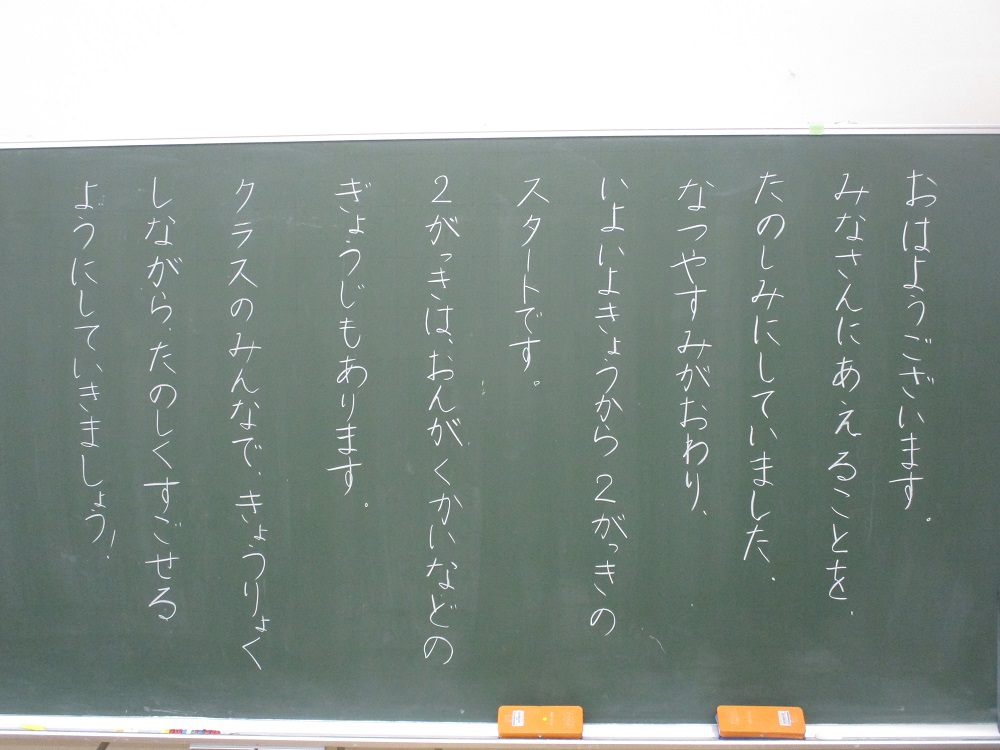 おはようございます。
みなさんにあえることを、
たのしみにしていました、
なつやすみがおわり、
いよいよきょうから2がっきの
スタートです。
2がっきは、おんがくかいなどの
ぎょうじもあります。
クラスのみんなで、きょうりょく
しながら、たのしくすごせる
ようにしていきましょう!